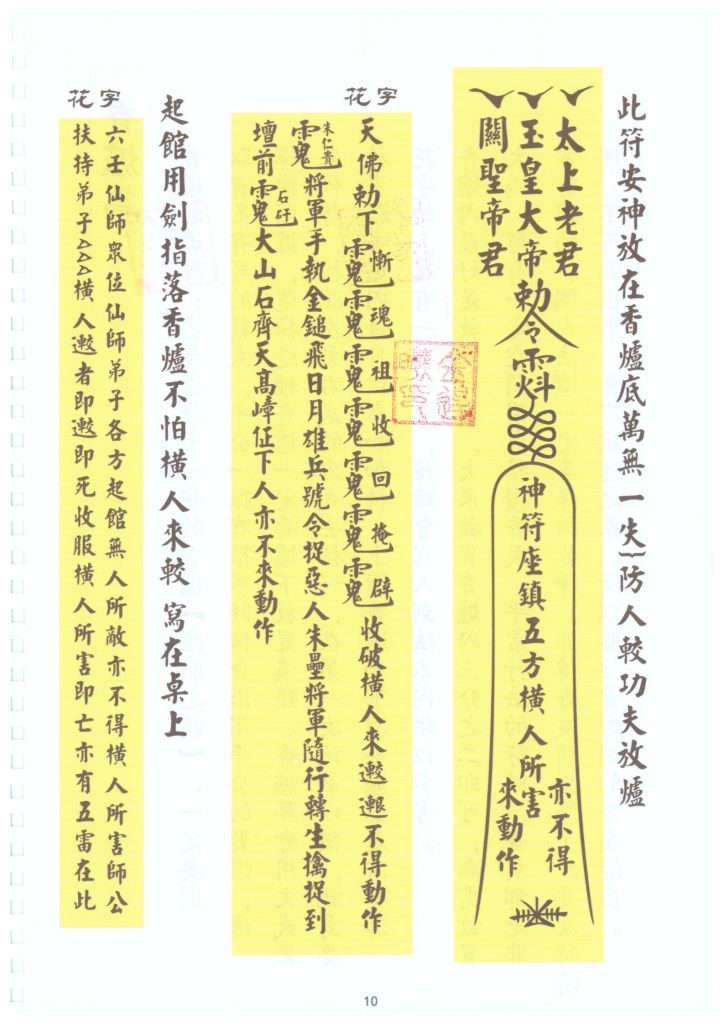 此符安神放在香爐底萬無一失防人較功夫放爐
太上老君
玉皇大帝勅令
關聖帝君
神符座鎮五方橫人所害
亦不得
來動作
花字
天佛勅下
慚魂祖收回掩辟
收破橫人來
不得動作
朱仁貴
將軍手執金鎚飛日月雄兵號令捉惡人朱壘將軍隨行轉生擒捉到
石矸
壇前
大山石齊天高嶂佂下人亦不來動作
起館用劍指落香爐不怕橫人來較 寫在桌上
花字
六壬仙師眾位仙師弟子各方起館無人所敵亦不得橫人所害師公
扶持弟子△△△橫人邀者即邀即死收服橫人所害即亡亦有五雷在此
10